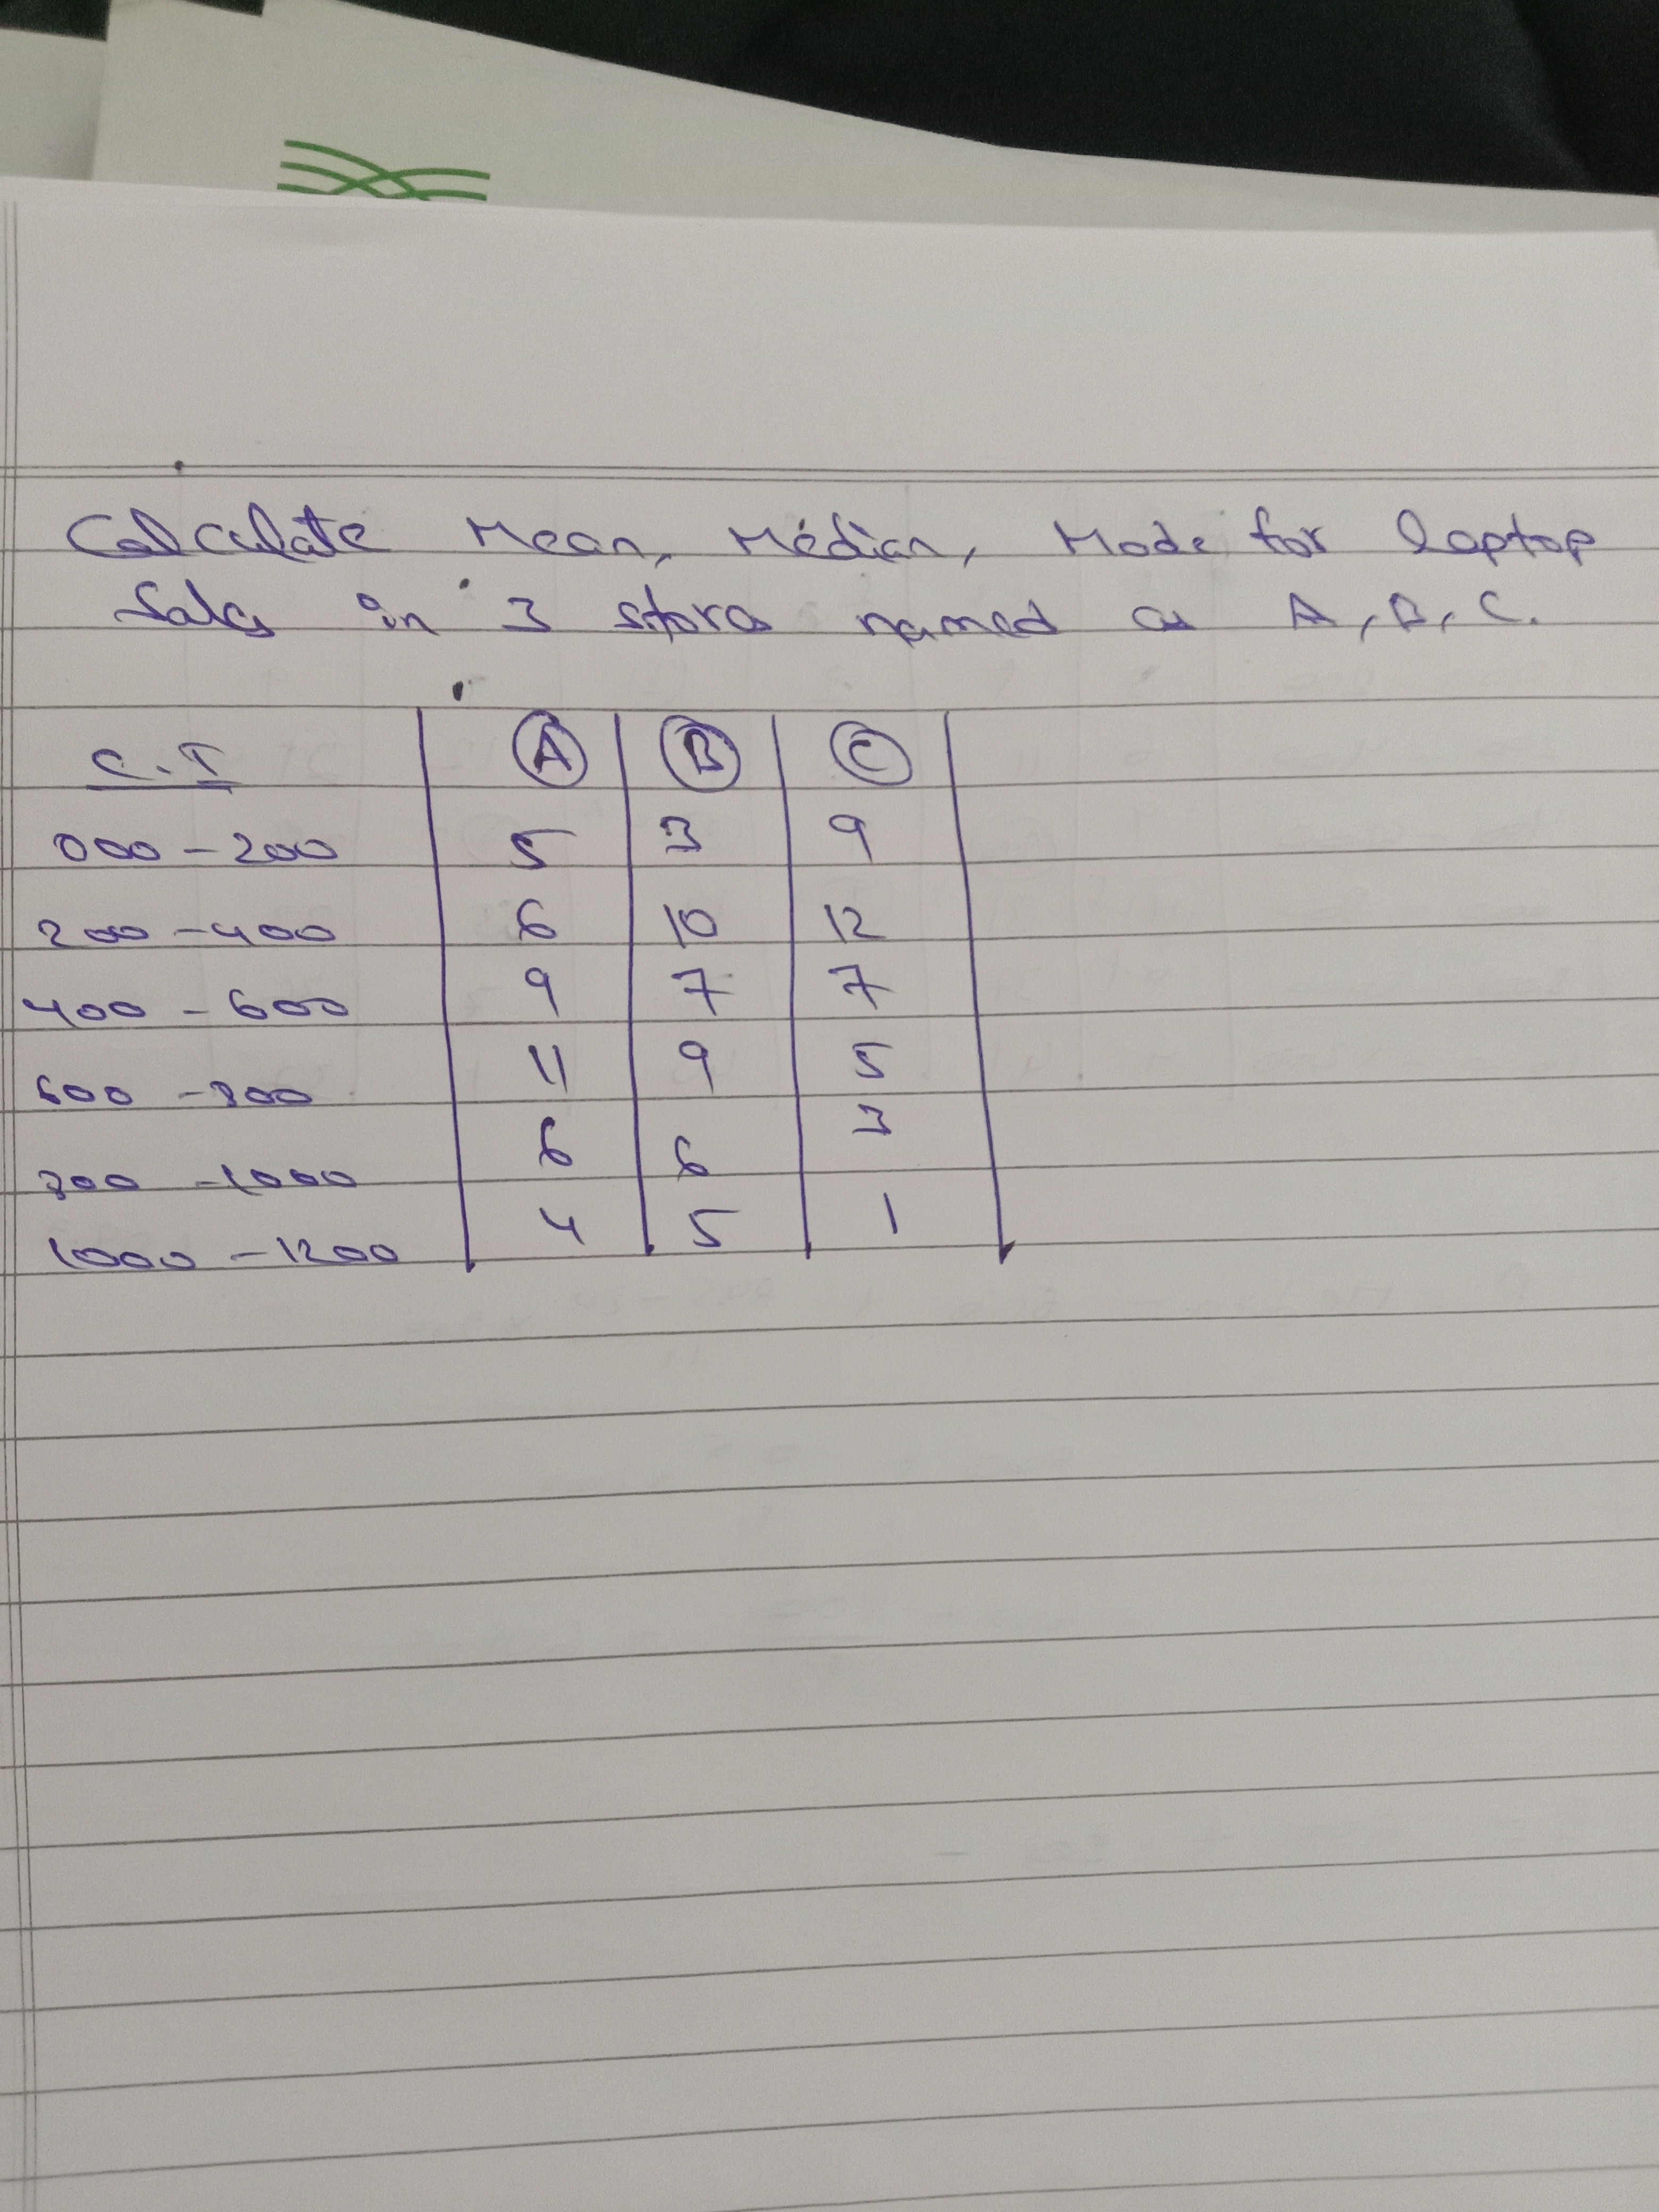 Calculate Mean, Median, Mode for laptop
Sales in 3 stores named as A, B, C.
C.I A B C
000 - 200 5 3 9
200 - 400 6 10 12
400 - 600 9 7 7
600 - 800 11 9 5
800 - 1000 6 6 3
1000 - 1200 4 5 1